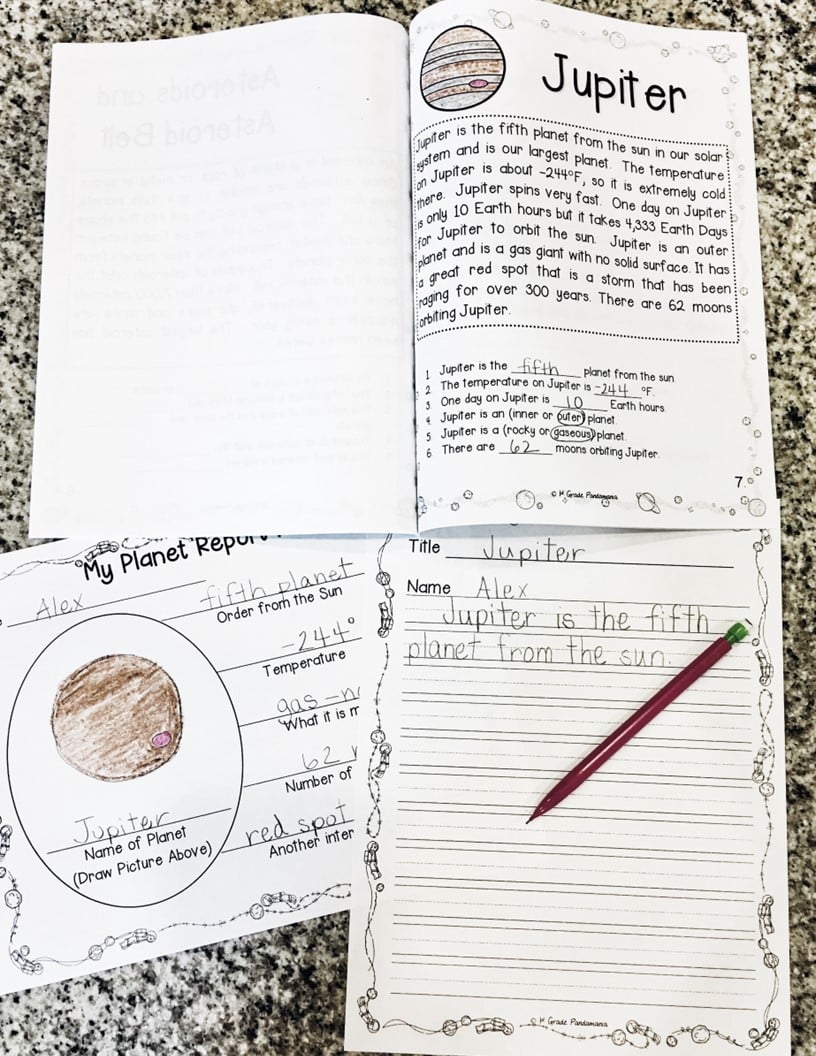 Jupiter
Jupiter is the fifth planet from the sun in our solar
system and is our largest planet. The temperature
on Jupiter is about -244°F, so it is extremely cold
there. Jupiter spins very fast. One day on Jupiter
is only 10 Earth hours but it takes 4,333 Earth Days
for Jupiter to orbit the sun. Jupiter is an outer
planet and is a gas giant with no solid surface. It has
a great red spot that is a storm that has been
raging for over 300 years. There are 62 moons
orbiting Jupiter.
1 Jupiter is the fifth planet from the sun.
2 The temperature on Jupiter is -244 °F.
3. One day on Jupiter is 10 Earth hours.
4. Jupiter is an (inner or outer) planet.
5 Jupiter is a (rocky or gaseous) planet.
6 There are 62 moons orbiting Jupiter.
7.
© 1st Grade Pandamania
My Planet Report
Alex
fifth planet
Order from the Sun
-244°
Temperature
gas
What it is
62
Number of
red spot
Another
Jupiter
Name of Planet
(Draw Picture Above)
Title Jupiter
Name Alex
Jupiter is the fifth
planet from the sun.
© 1st Grade Pandamania